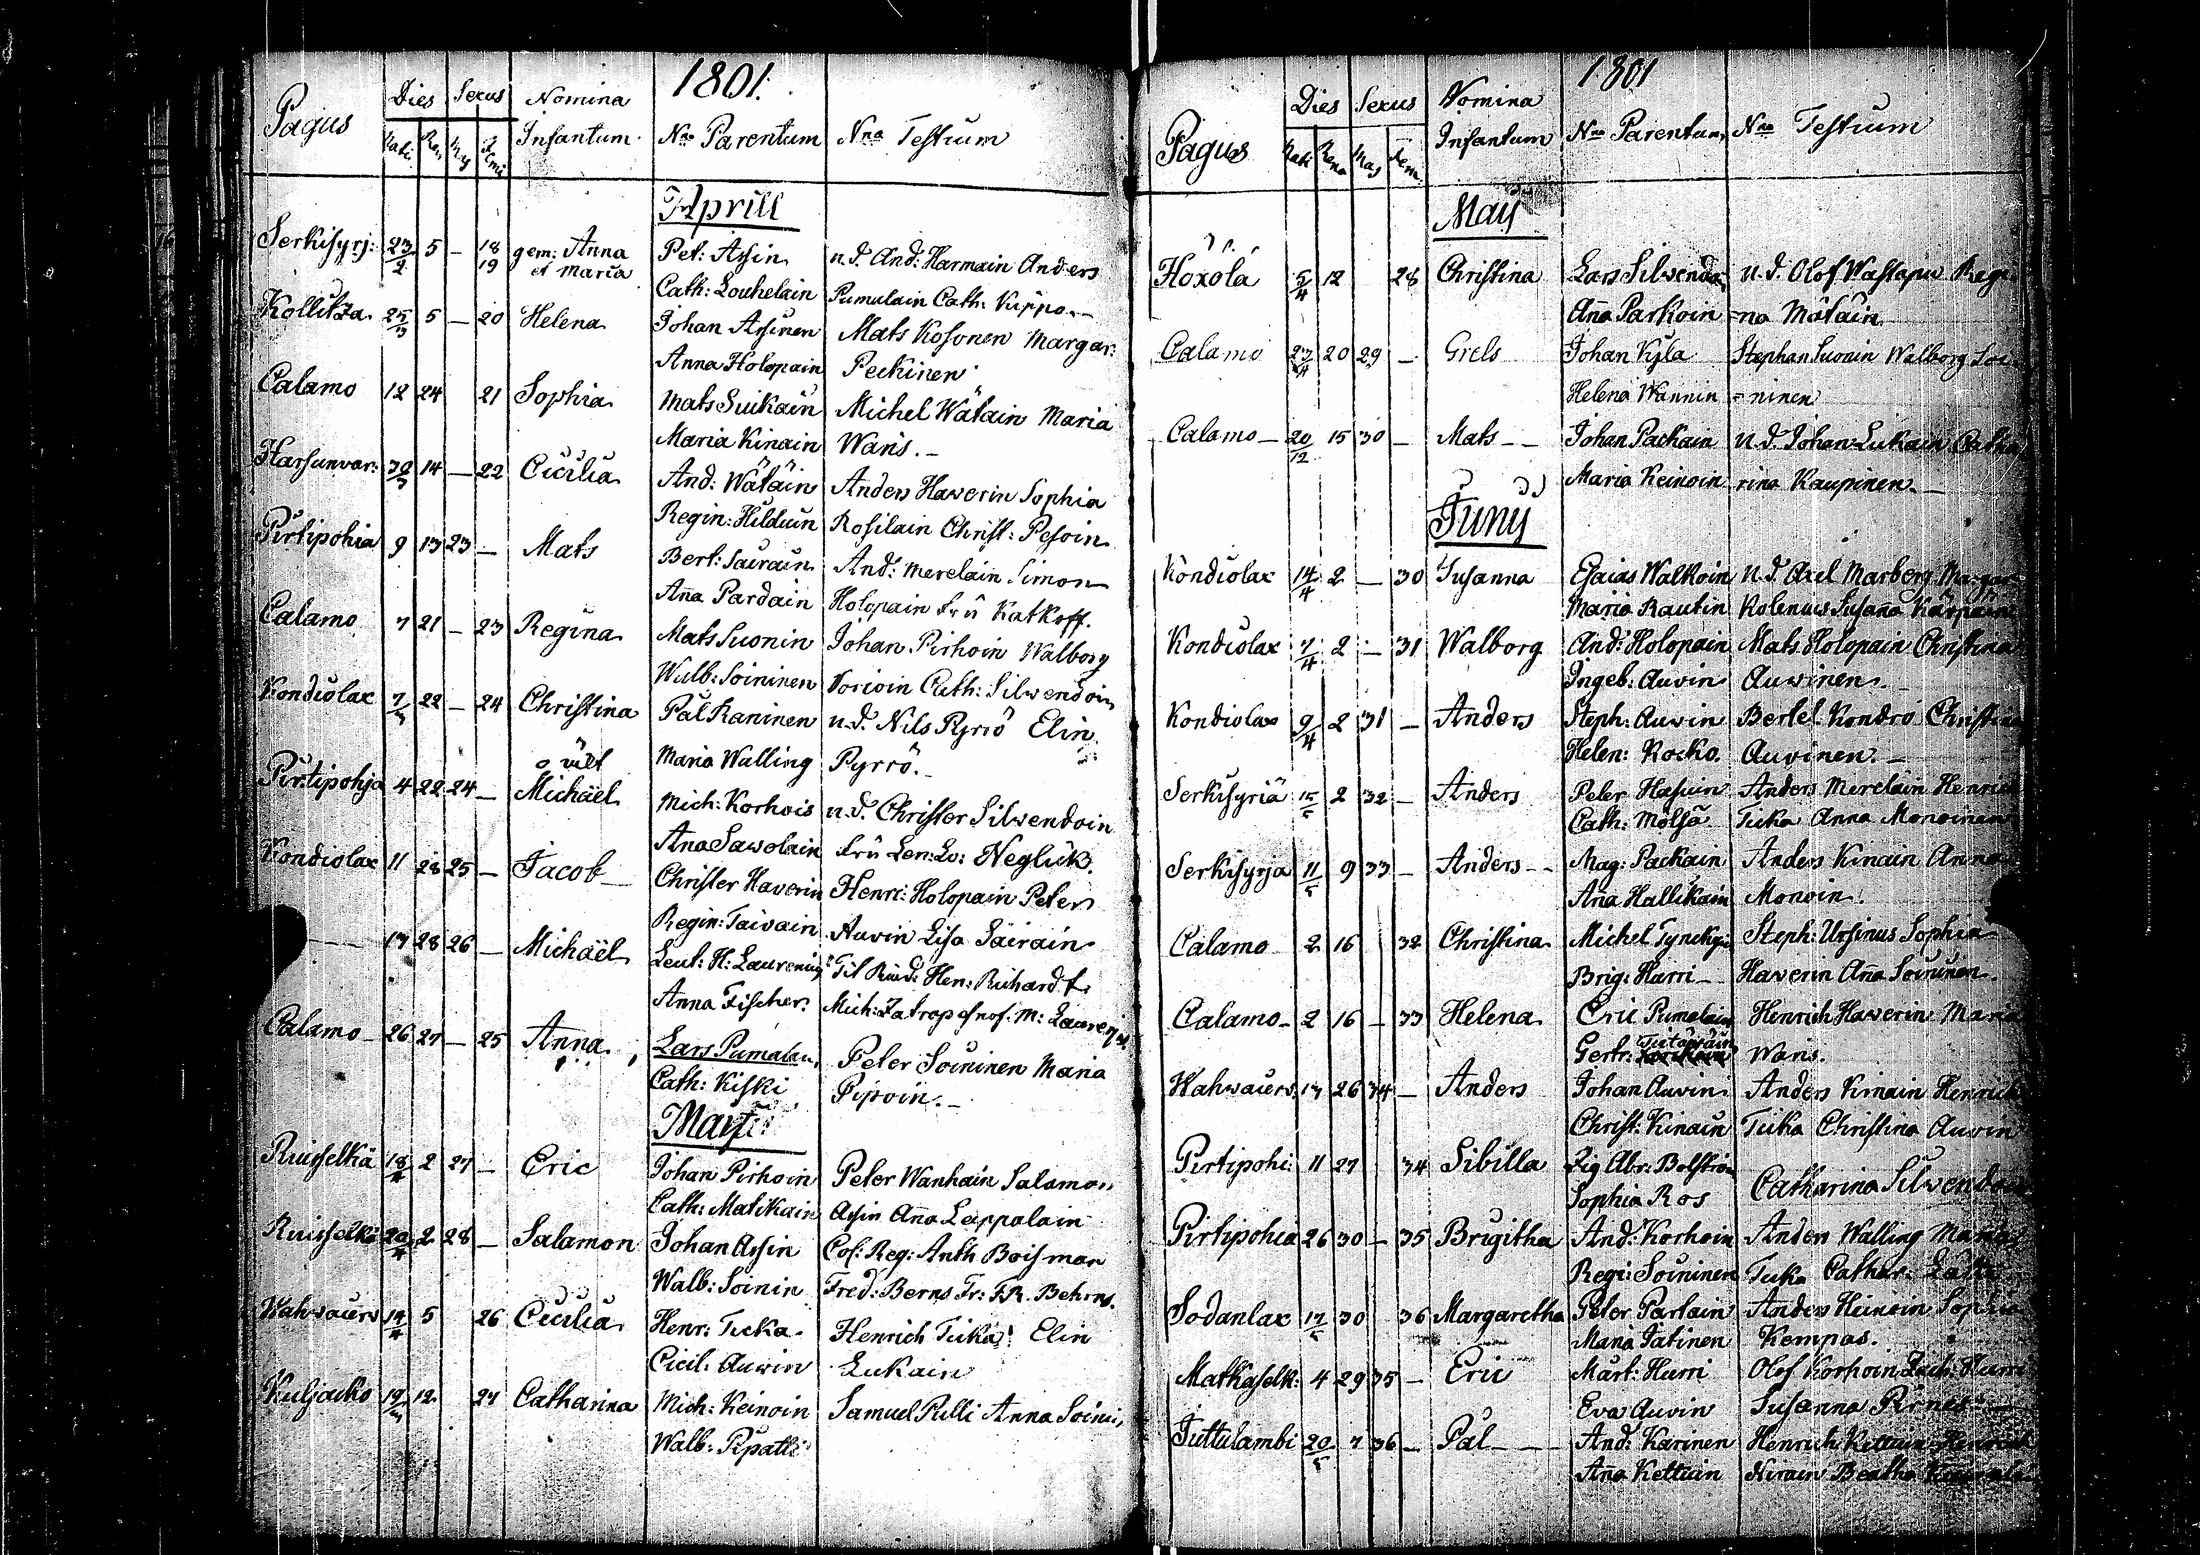 1801.
Pagus Dies Sexus Nomina
Nati Ren My Femi Infantum. Nna Parentum Nna Testium
Aprill
Serkisyrj: 23/2 5 — 18 19 gem: Anna et Maria Pet: Assin u.d. And: Harmain Anders
Cath: Louhelain Pumalain Cath: Kippo.—
Kollitza 25/3 5 — 20 Helena Johan Assinen Mats Kosonen Margar:
Anna Holopain Peckinen
Calamo 12 24 21 Sophia Mats Suikain Michel Wätäin Maria
Maria Kinain Waris.—
Harsunvar: 30/3 14 — 22 Cicilia And: Wätäin Anders Haverin Sophia
Regin: Hilduin Rosilain Christ: Pesoin
Pirtipohia 9 13 23 — Mats Bert: Sairain And: Merelain Simon
Aña Pardain Holopain frú Katkoff.
Calamo 7 21 — 23 Regina Mats Suonin Johan Pirhoin Walborg
Walb: Soininen Cath: Silwendoin
Kondiolax 7/4 22 — 24 Christina Pål Raninen u.d. Nils Pyrrö Elin
Maria Walling Pyrrö.—
Pirtipohja 4 22 24 — o äkt Michäel Mich: Korhois u.d. Christer Silwendoin
Ana Sawolain frú Len: Lo: Neglick.
Kondiolax 11 28 25 — Jacob — Christer Haverin Henri: Holopain Peter
Regin: Taivain Auvin Lisa Säirain
17 28 26 — Michäel Leut: H: Laurenius Hen: Richardt
Anna Fischer. Mich:
Calamo 26 27 — 25 Anna Lars Pumalain Peter Soininen Maria
Cath: Kiski Pipoin.—
Maji
Ruisselkä 18/4 2 27 — Eric Johan Pirhoin Peter Wanhain Salamon
Cath: Matikain Assin Aña Leppalain
Ruisselkä 20/4 2 28 — Salamon Johan Assin Cof: Reg: Anth Boisman
Walb: Soinin Fred: Berns Fr: F.R. Behrns.
Wahwaiers 14/4 5 26 Cicilia Henr: Ticka Henrich Ticka: Elin
Cicil: Auwin Lukain
Kuljacko 19/4 12 27 Catharina Mich: Keinoin Samuel Pelli Anna Soini
Walb: Pipatti
1801
Pagus Dies Sexus Nomina
Nati Rena Mas Fem. Infantum Nna Parentum Nna Testium
Maij
Hoxola 5/4 12 28 Christina Lars Silwendoin u.d. Olof Wastapu Regi
Aña Parkoin =na Mätäin
Calamo 27/4 20 29 — Grels Johan Kyla Stephan Suonin Walborg Soi
Helena Wannin =ninen
Calamo — 20/12 15 30 — Mats — Johan Packain u.d. Johan Lukain Catha
Maria Keinoin rina Kaupinen.—
Juny
Kondiolax 14/4 2 — 30 Susanna Esaias Walkoin u.d. Axel Marberg Margar
Maria Rautin Kolenius Susaña
Kondiolax 7/4 2 — 31 Walborg And: Holopain Mats Holopain Christina
Ingeb: Auvin Auwinen.—
Kondiolax 9/4 2 31 — Anders Steph: Auvin Bertel Kondro Christina
Helen: Kocko. Auvinen.—
Serkisyriä 15/5 2 32 — Anders Peter Hassuin Anders Merelain Henrich
Cath: Mölsä Ticka Anna Monoinen
Serkisyrja 11/5 9 33 — Anders — Mag: Packain Anders Kinain Anna
Aña Hallikain Monoin.
Calamo 2 16 32 Christina Michel Tynckyn Steph: Ursinus Sophia
Brig: Harri — Haverin Aña Soininen.
Calamo — 2 16 — 33 Helena Eric Pumalain Henrich Haverin Maria
Gertr: Waris.
Wahwaiers 17 26 34 — Anders Johan Auvin Anders Kinain Henrich
Christ: Kinain Ticka Christina Auvin
Pirtipohi: 11 27 34 Sibilla Zig Abr: Bolström Catharina Silwendoin
Sophia Ros
Pirtipohia 26 30 — 35 Brigitha And: Korhoin Anders Walling Maria
Regi: Soininen Ticka Cathar:
Sodanlax 17/5 30 36 Margaretha Peter Partain Anders Heinoin Sophia
Maria Jatinen Kempas.
Matkaselk: 4 29 35 — Eric Mårt: Hurri Olof Korhoin Zach: Hurri
Eva Auvin Susanna Pirnes
Juttulambi 20/5 7 36 — Pål — And: Karinen Henrich Kettuin Henrich
Aña Kettuin Nirain Beatha